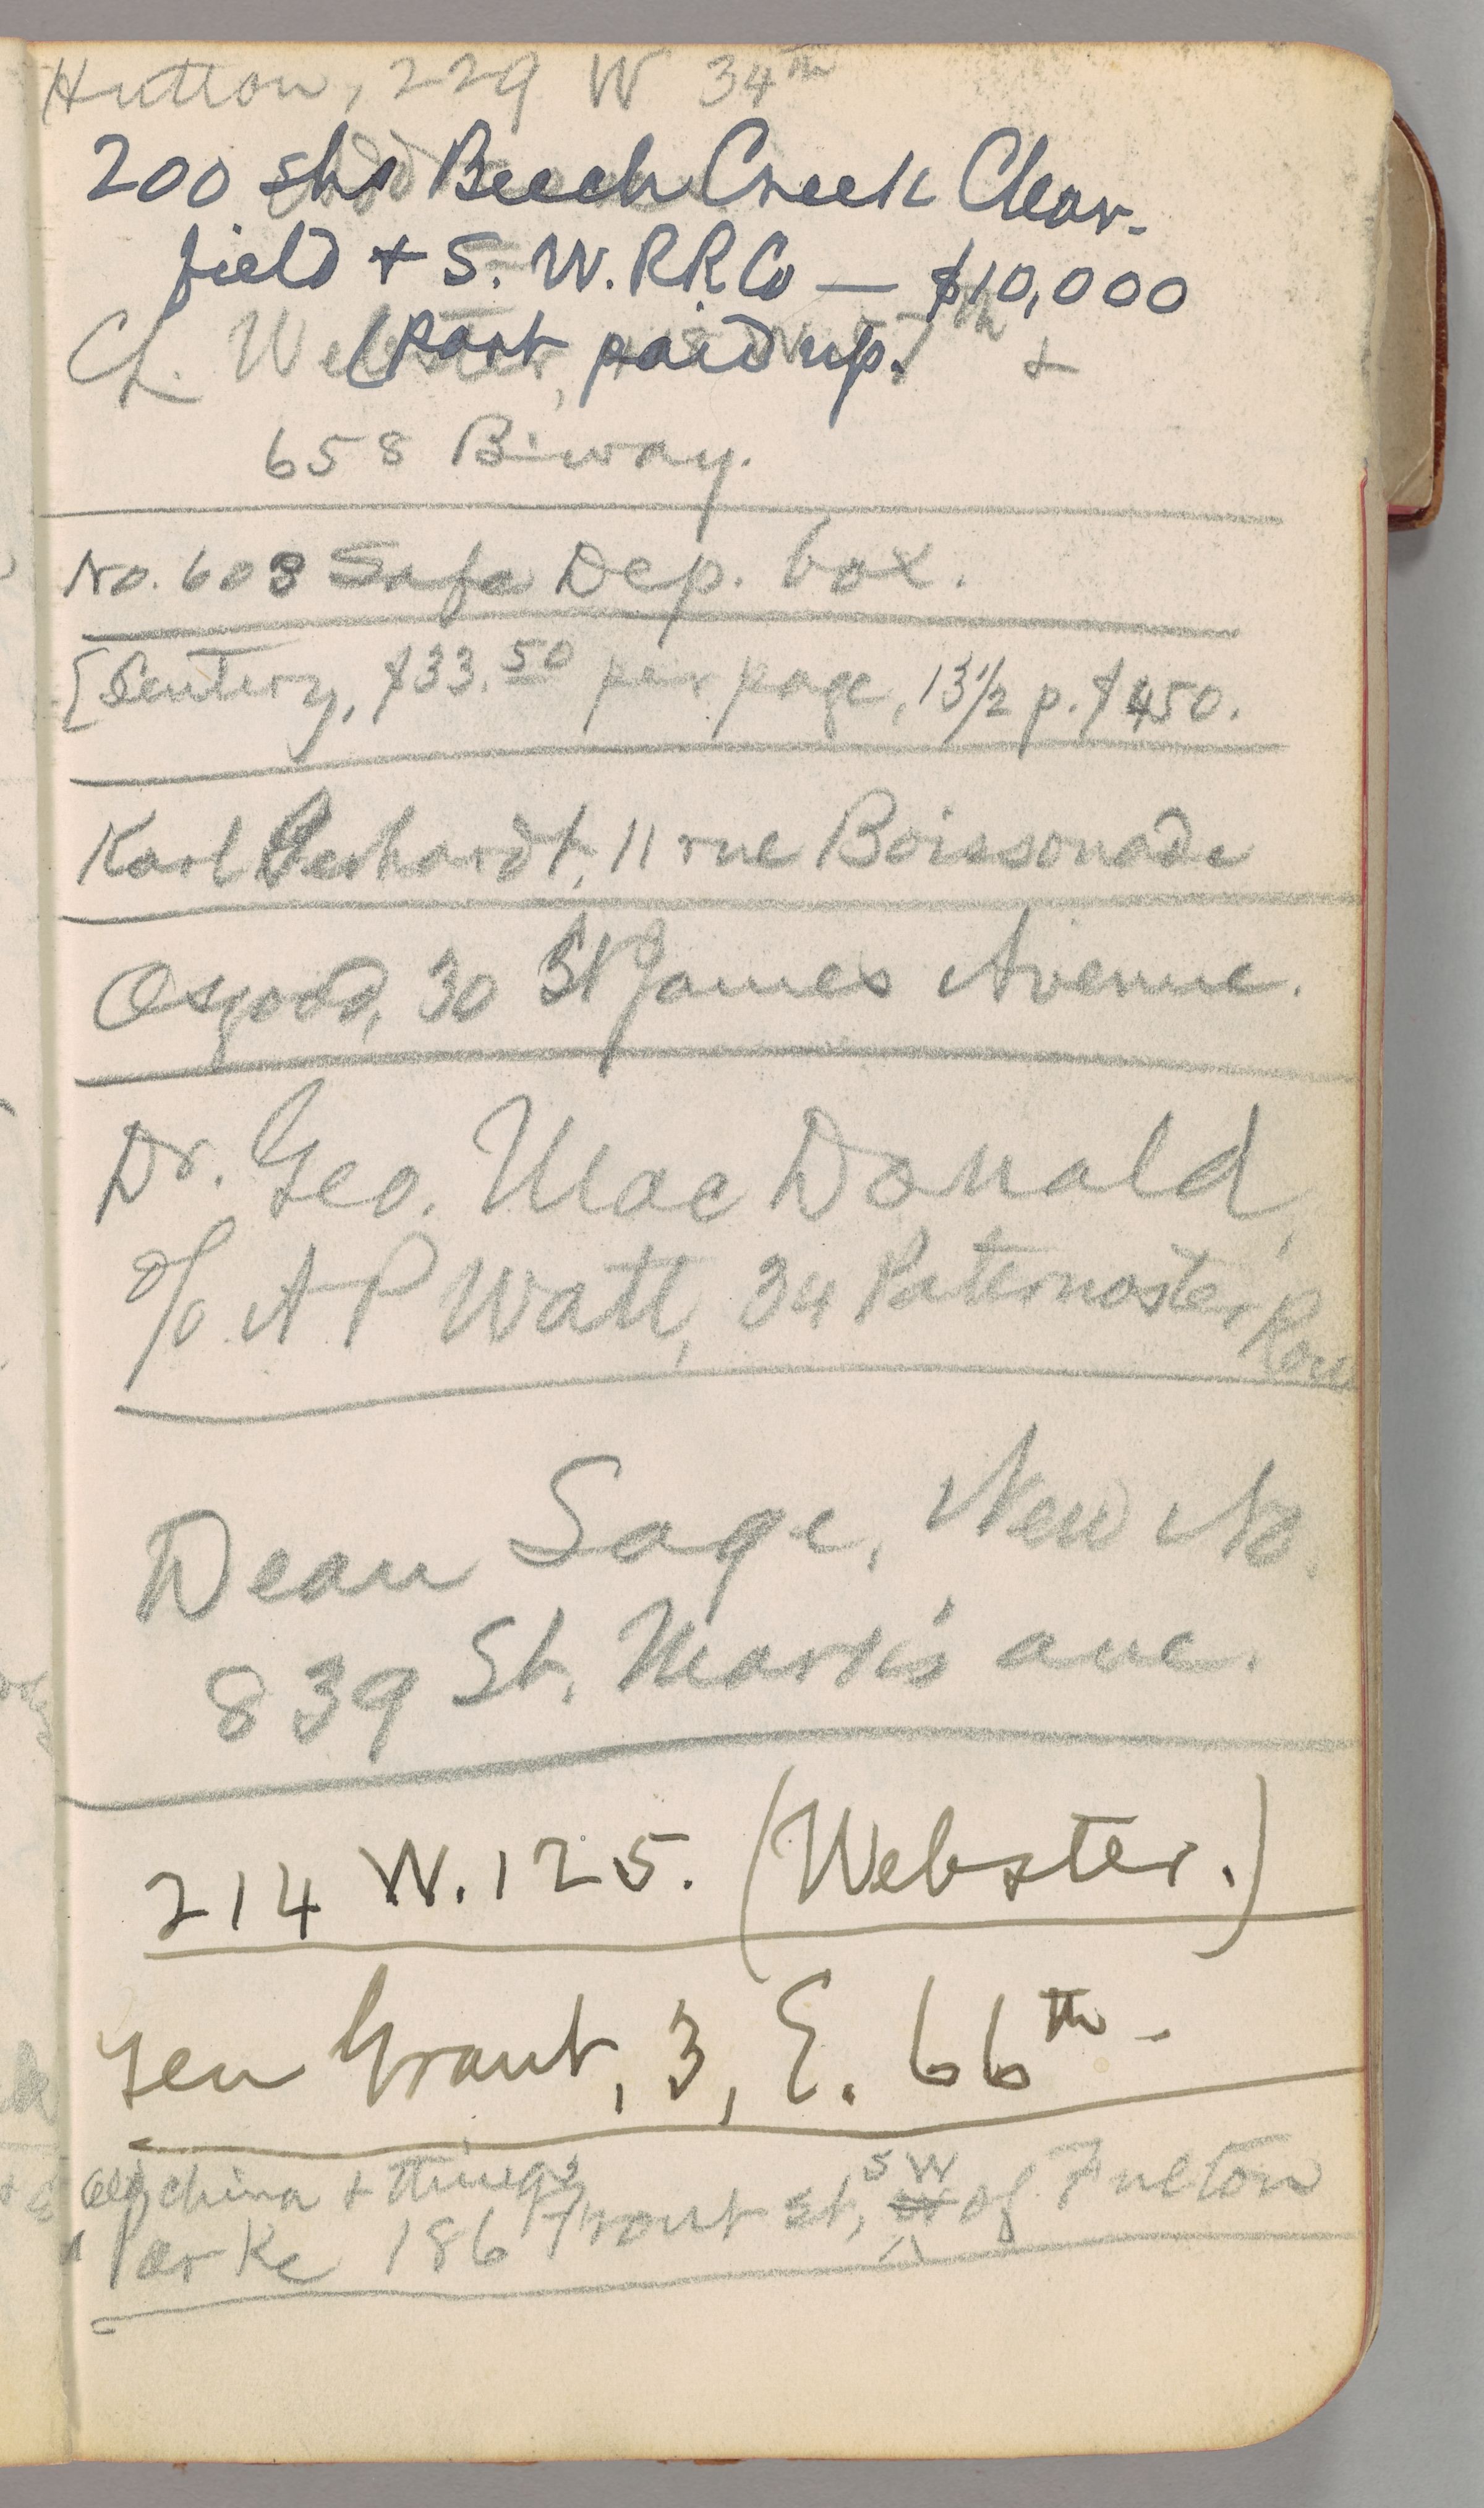 Hutton, 229 W 34th
200 shs Beech Creek Clear-
field + S. W. R R Co — $10,000
(Part paid up.
Ch. Webster, 7th +
658 B'way.
No. 608 Safe Dep. box.
[Sentury, $33.50 per page, 13½ p. $450.
Karl Gerhardt, 11 rue Boissonade
Osgood, 30 St James Avenue.
Dr. Geo. MacDonald,
c/o A P Watt, 34 Paternoster Row
Dean Sage, New No.
839 St. Mark's ave.
214 W. 125. (Webster.)
Gen Grant, 3, E. 66th -
Old china + things
Parke 186 Front st, SW of Fulton